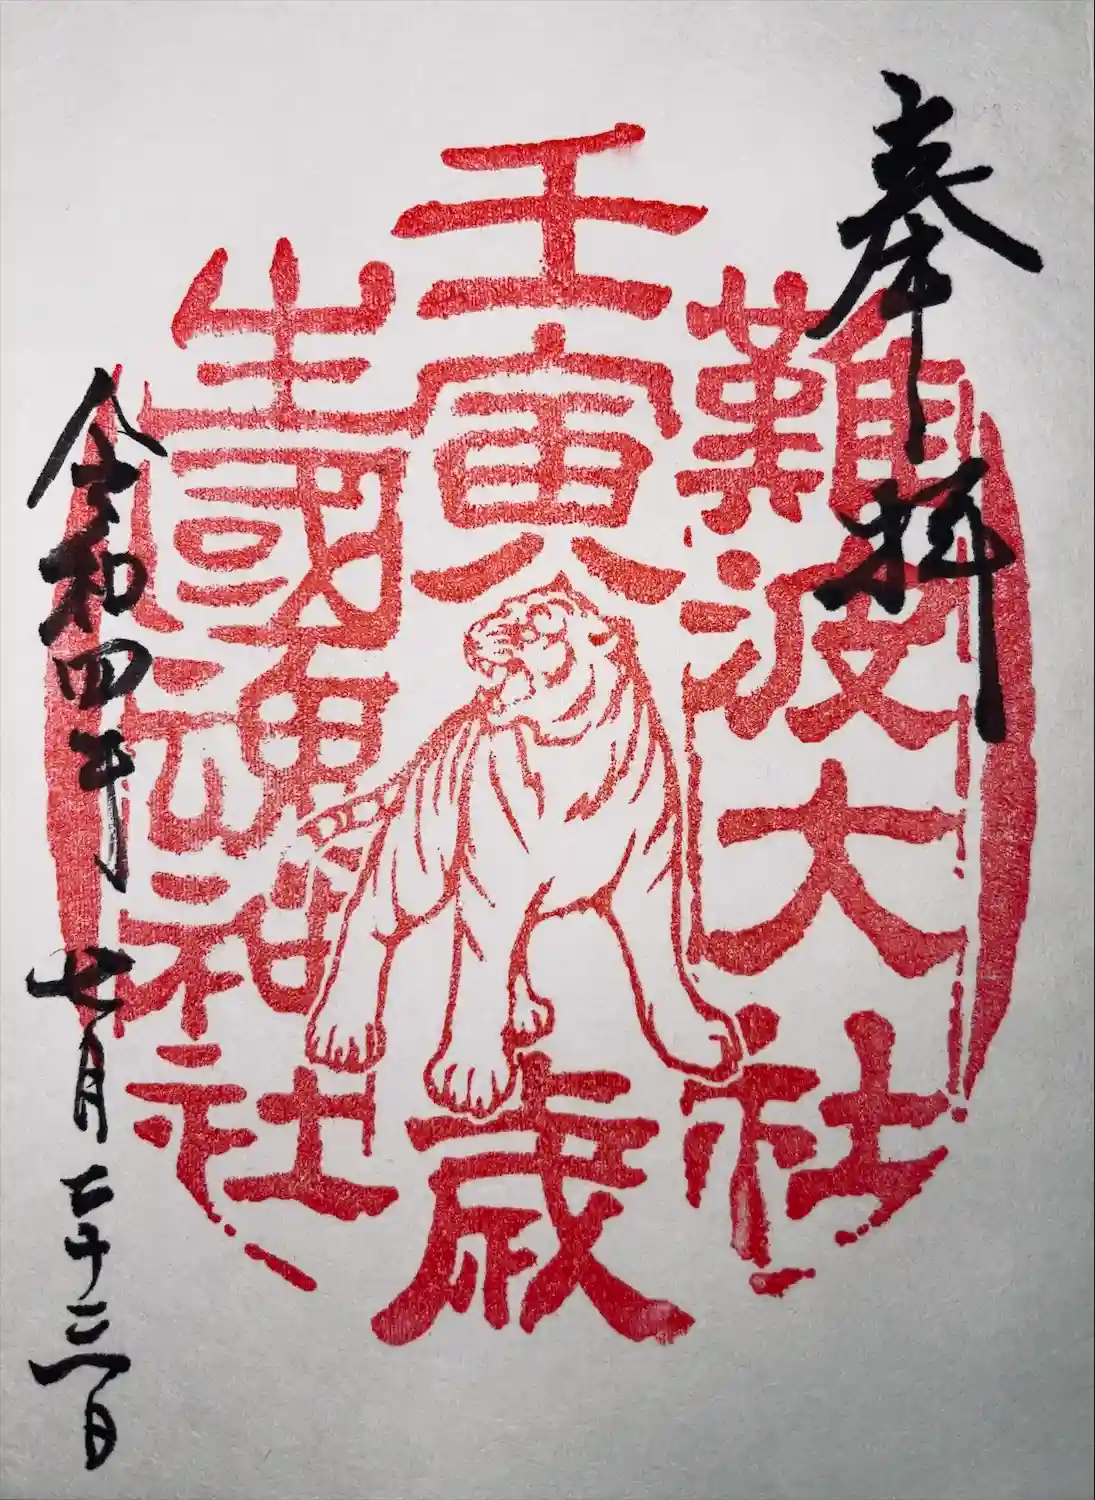 奉拝
難波大社
壬寅歳
生國魂神社
令和四年七月二十三日